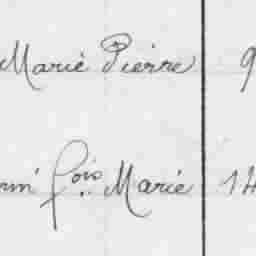 Marie Pierre 9
fois Marie 14